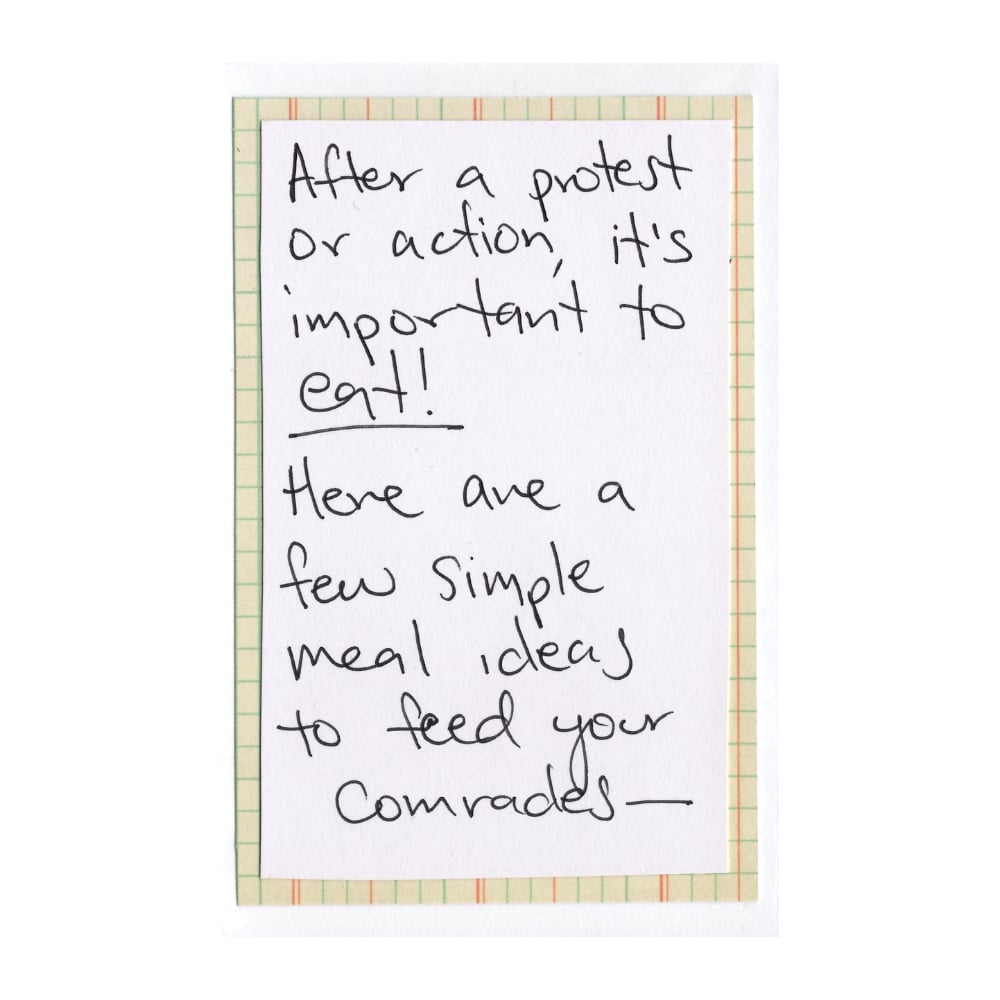 After a protest
or action, it's
important to
eat!
Here are a
few simple
meal ideas
to feed your
Comrades—